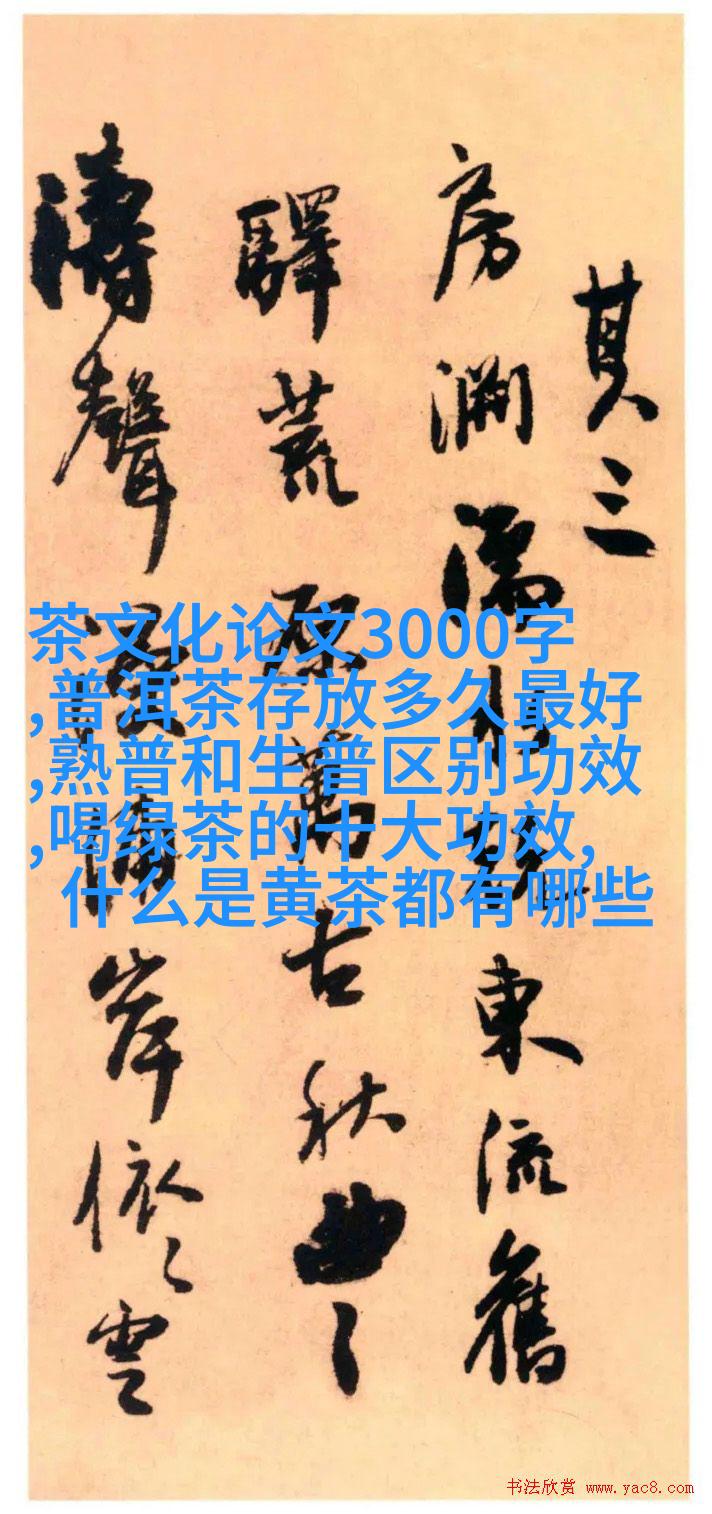 其三
房 濡水 東流舊
驛荒原萬古秋曲〻
濤聲 岸依〻雲
茶文化论文3000字
,普洱茶存放多久最好
,熟普和生普区别功效
,喝绿茶的十大功效,
什么是黄茶都有哪些
书法欣赏 www.yac8.com